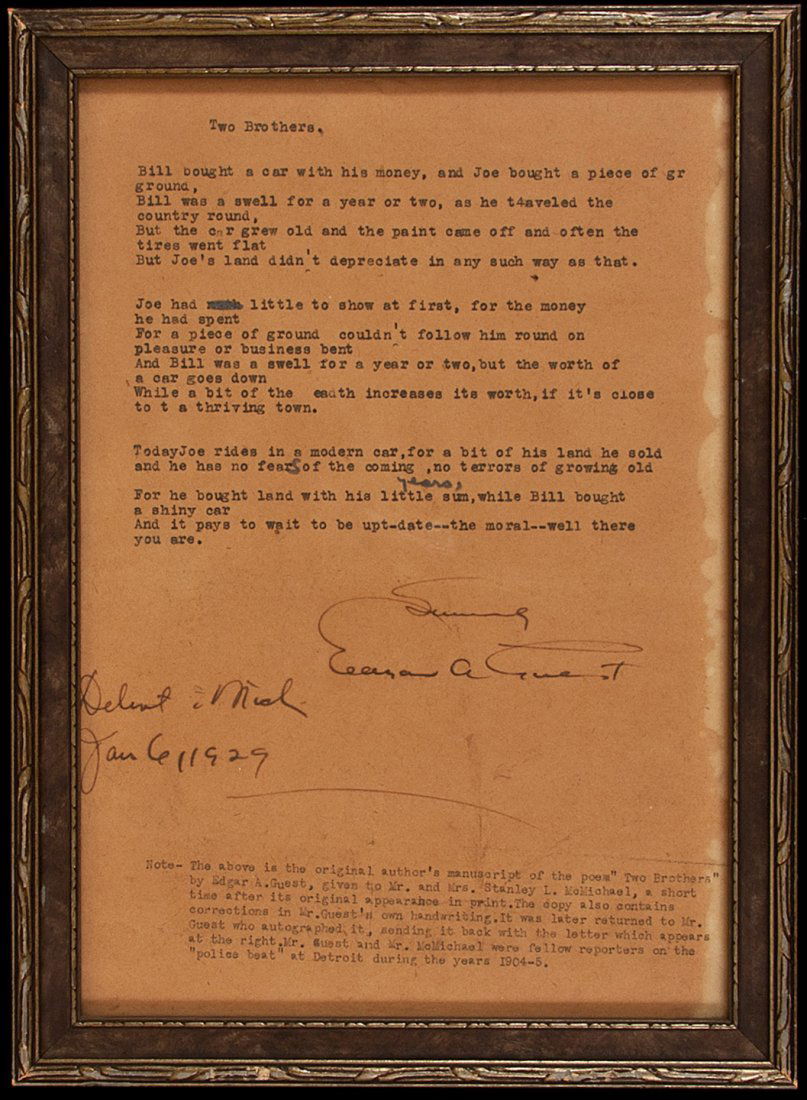 Two Brothers.
Bill bought a car with his money, and Joe bought a piece of gr
ground,
Bill was a swell for a year or two, as he t4aveled the
country round,
But the car grew old and the paint came off and often the
tires went flat
But Joe's land didn't depreciate in any such way as that.
Joe had little to show at first, for the money
he had spent
For a piece of ground couldn't follow him round on
pleasure or business bent
And Bill was a swell for a year or two,but the worth of
a car goes down
While a bit of the eadth increases its worth,if it's close
to t a thriving town.
TodayJoe rides in a modern car,for a bit of his land he sold
and he has no fearS of the coming ,no terrors of growing old
years,
For he bought land with his little sum,while Bill bought
a shiny car
And it pays to wait to be upt-date--the moral--well there
you are.
Sincerely
Edgar A Guest
Detroit, Mich
Jan 6, 1929
Note- The above is the original author's manuscript of the poem" Two Brothers"
by Edgar A.Guest, given to Mr. and Mrs. Stanley L. McMichael, a short
time after its original appearance in print.The copy also contains
corrections in Mr.Guest's own handwriting.It was later returned to Mr.
Guest who autographed it, sending it back with the letter which appears
at the right.Mr. Guest and Mr. McMichael were fellow reporters on the
"police beat" at Detroit during the years 1904-5.